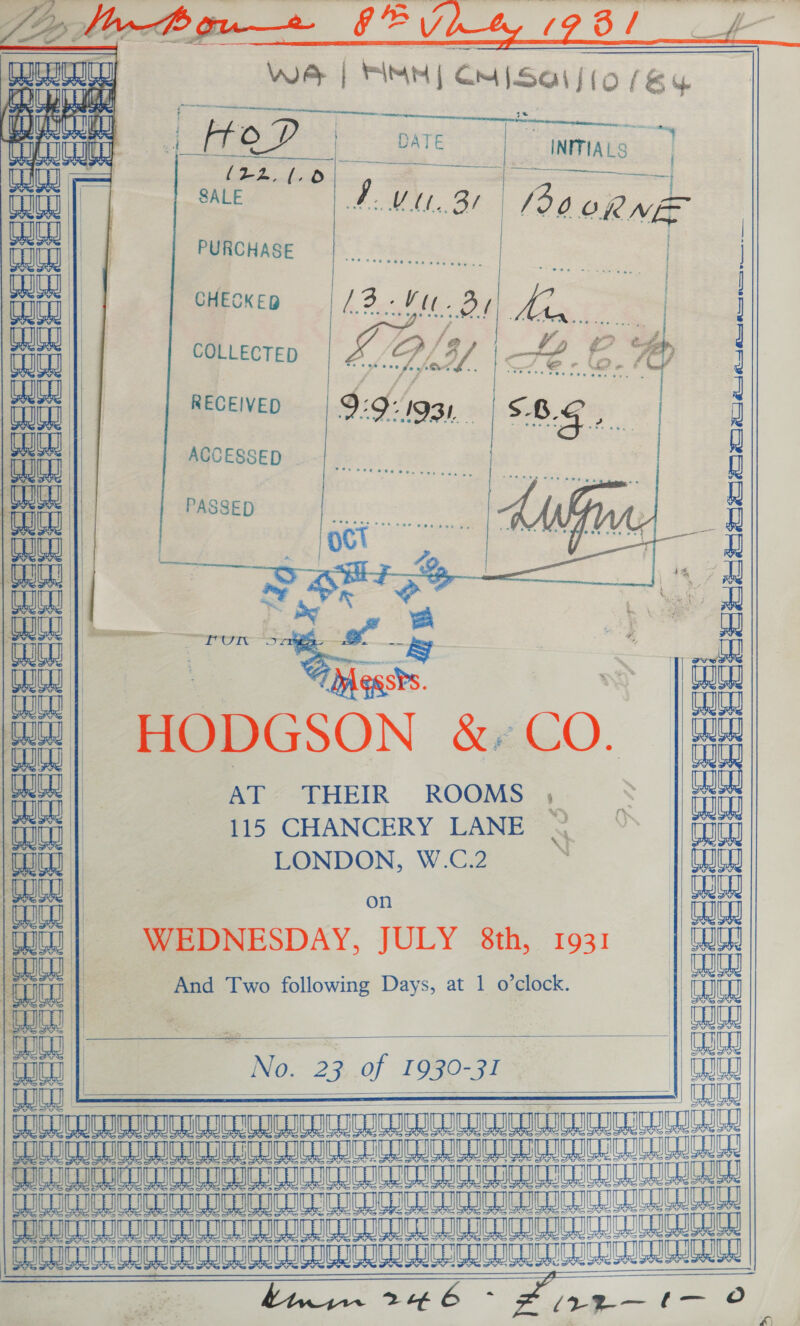 Mr Bourne 8th July 1931
WA | HMM | CM | Sal | 10 / 84
HOD DATE INITIALS
122.1.0
SALE 8.VII.31 BOURNE
PURCHASE
CHECKED 13.VII.31
COLLECTED 8/9/31
RECEIVED 9:9:1931. S.B.G.
ACCESSED
PASSED
10 OCT 1931
FOR SALE
Messrs.
HODGSON & CO.
AT THEIR ROOMS
115 CHANCERY LANE
LONDON, W.C.2
on
WEDNESDAY, JULY 8th, 1931
And Two following Days, at 1 o'clock.
No. 23 of 1930-31
45
9.11
246 - £122-1-0